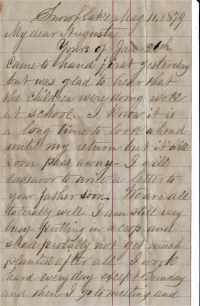 Snowflake May 16, 1879
My dear Augusta
Yours of Jan 26th
came to hand just yesterday
but was glad to hear that
the children were doing well
at school. I know it is
a long time to look ahead
until my return but it will
soon pass away. I will
endeavor to write a letter to
your father soon. We are all
tolerably well I am still very
busy putting in a crop and
shall probably not get much
planted after all. I work
hard every day except Sunday
and then I go to meeting and